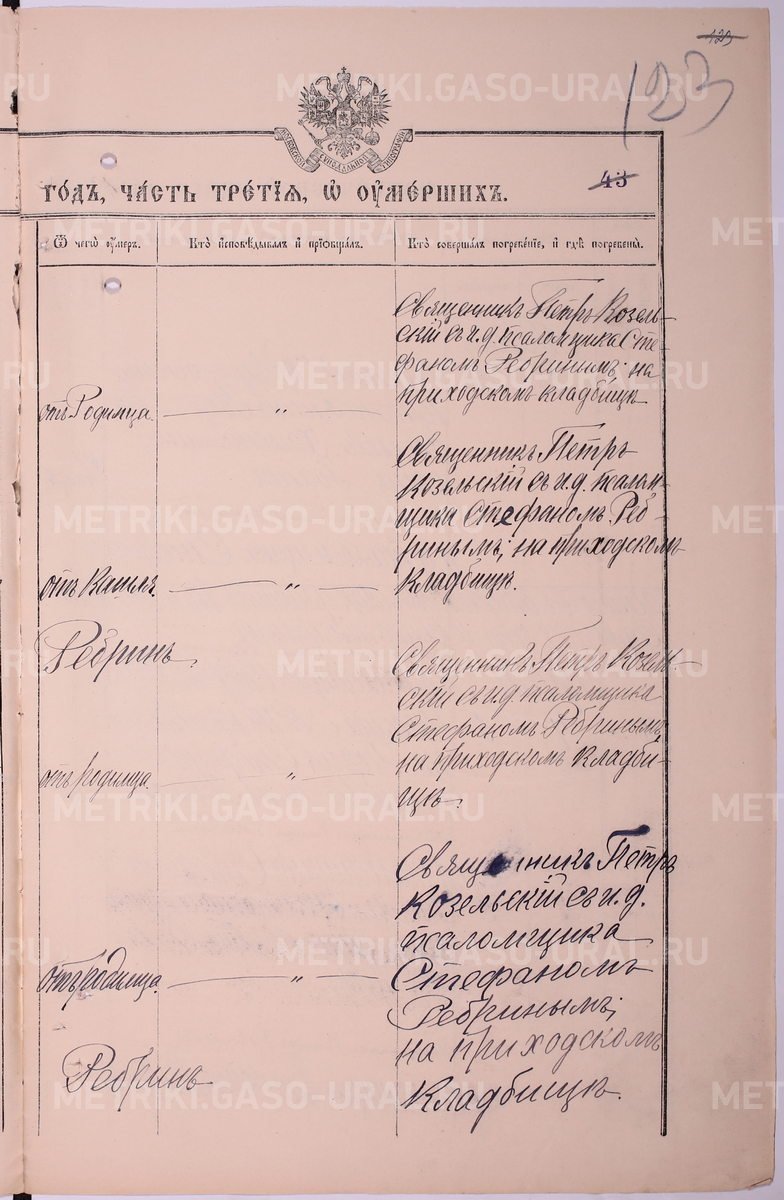 123
123
МОСКОВСКОЙ СѴНОДАЛЬНОЙ ТИПОГРАФІИ
43
го́дъ, ча́сть тре́тїѧ, ѡ҆ ᲂу҆ме́ршихъ.
Ѿ чегѡ̀ ᲂу҆́меръ.
Кто̀ и҆сповѣ́дывалъ и҆ прїѡбща́лъ.
Кто̀ соверша́лъ погребе́нїе, и҆ гдѣ̀ погребены̀.
Священникъ Петръ Козель-
скій съ и. д. псаломщика Сте-
фаномъ Ребринымъ; на
приходскомъ кладбищѣ
отъ Родимца. — „ —
Священникъ Петръ
Козельскій съ и. д. псалом-
щика Стефаномъ Реб-
ринымъ; на приходскомъ
кладбищѣ.
отъ Кашля. — „ —
Ребринъ.
Священникъ Петръ Козель-
скій съ и. д. псаломщика
Стефаномъ Ребринымъ,
на приходскомъ кладби-
щѣ.
отъ родимца. — „ —
Священникъ Петръ
Козельскій съ и. д.
псаломщика
отъ родимца. — „ — Стефаномъ
Ребринымъ;
на приходскомъ
Ребринъ
Кладбищѣ.
METRIKI.GASO-URAL.RU